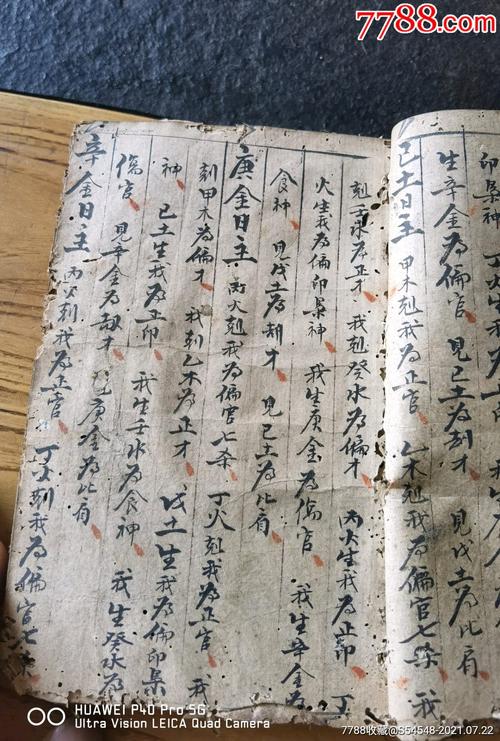 7788.com
印梟神 丁火
生辛金為偏官 見己土為刼才 見戊土為比肩
己土日主 甲木尅我為正官 乙木尅我為偏官七杀 我
尅壬水為正才 我尅癸水為偏才 丙火生我為正印 丁
火生我為偏印梟神 我生庚金為傷官 我生辛金為
食神 見戊土為刼才 見己土為比肩
庚金日主 丙火尅我為偏官七杀 丁火尅我為正官 我
刻甲木為偏才 我刻乙木為正才 戊土生我為偏印梟
神 己土生我為正印 我生壬水為食神 我生癸水為
傷官 見辛金為刼才 見庚金為比肩
辛金日主 丙火刻我為正官 丁火刻我為偏官七杀
HUAWEI P40 Pro 5G
Ultra Vision LEICA Quad Camera
7788收藏@S54548-2021.07.22